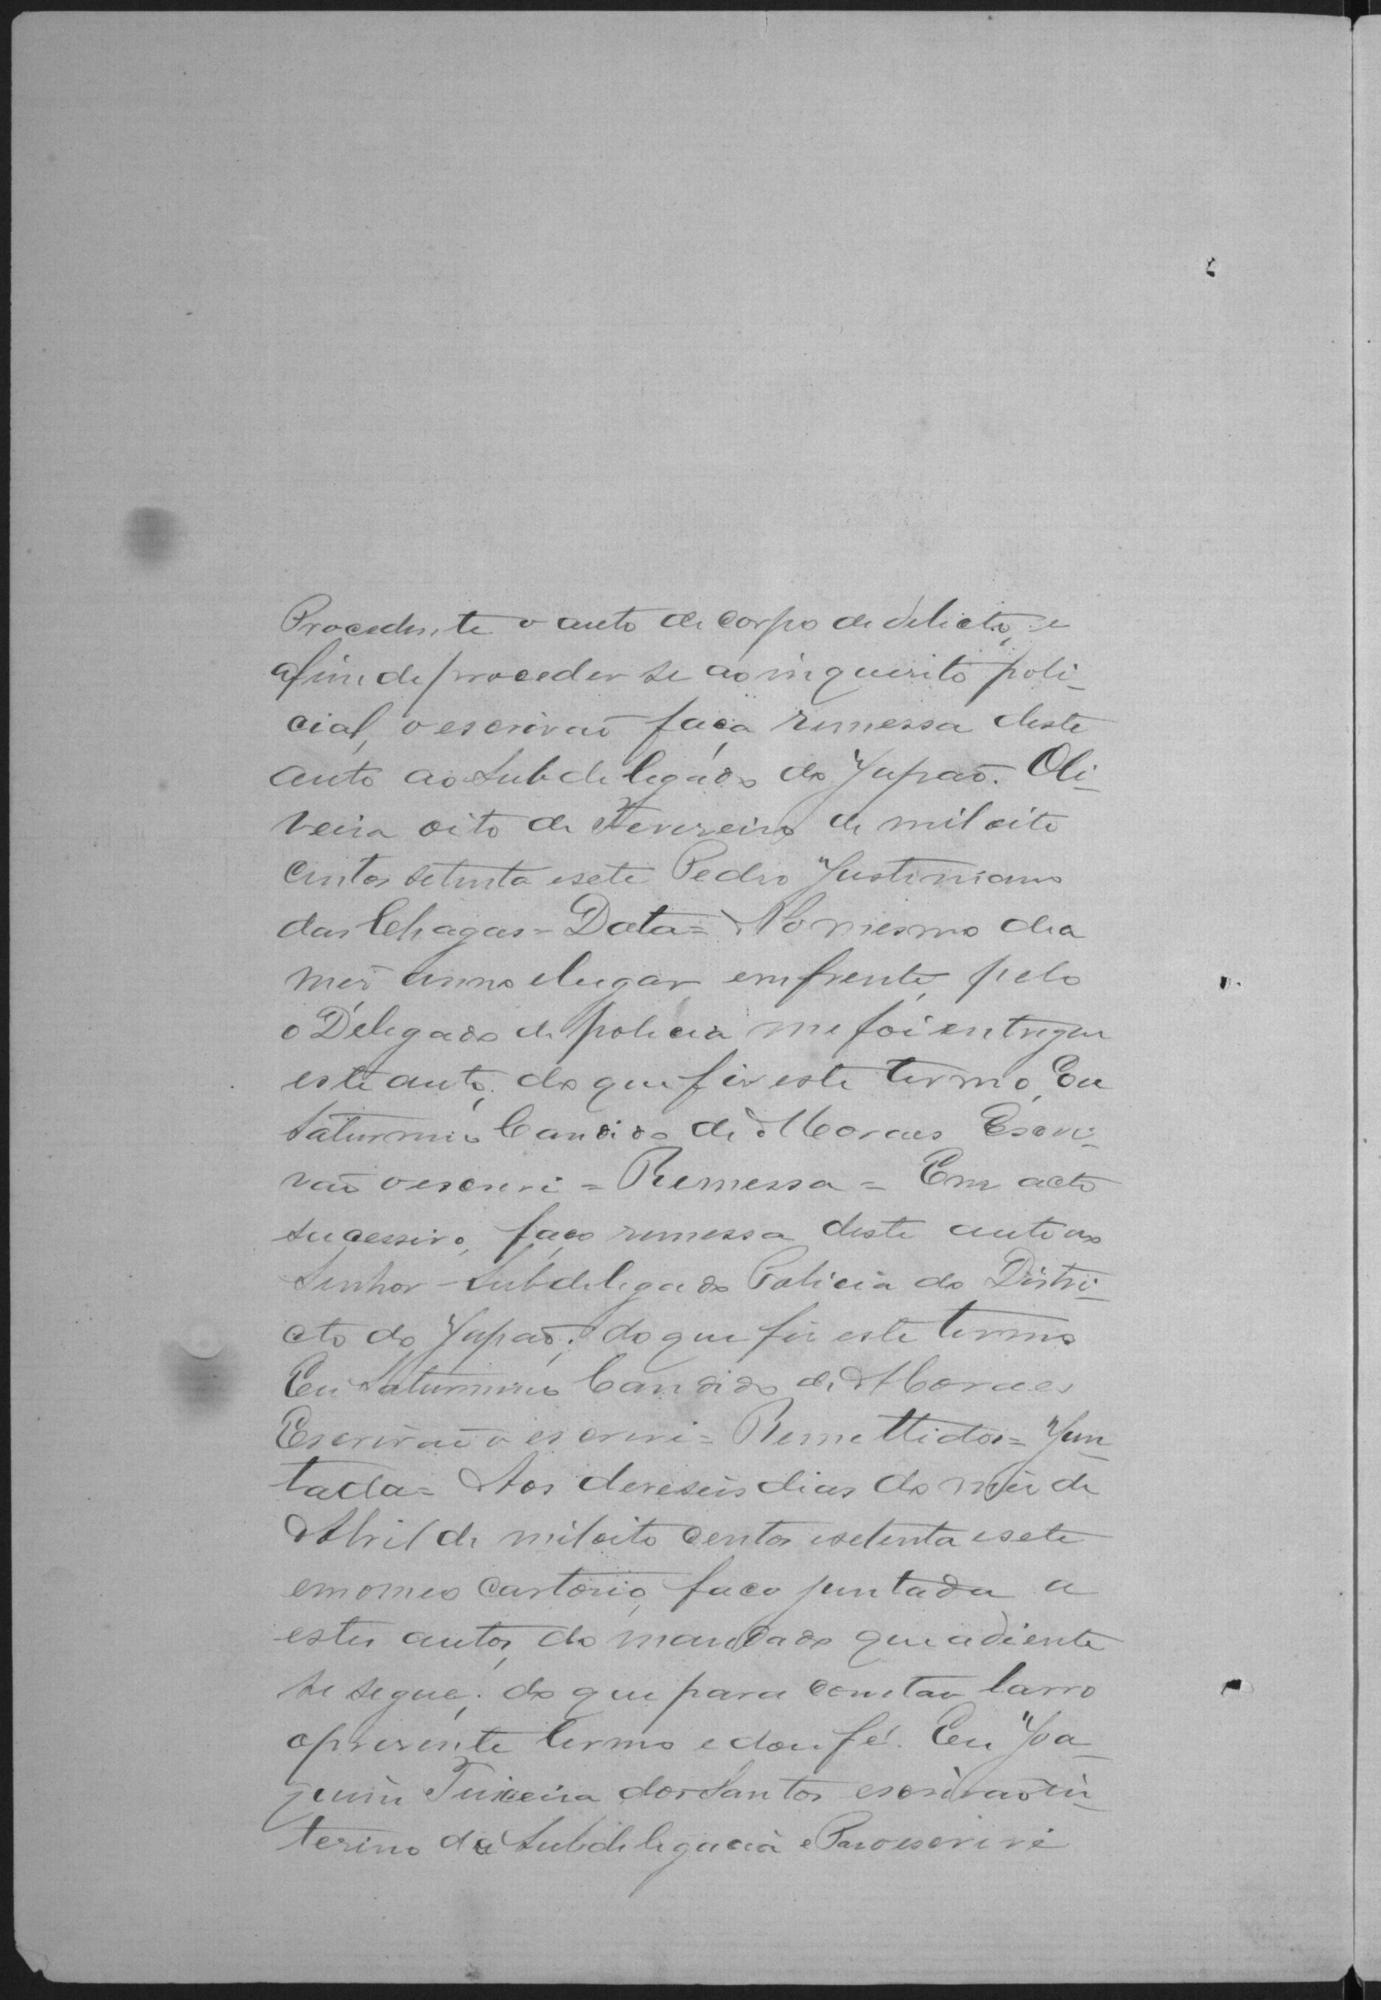 Procedente o auto de corpo de delicto, e
afim de proceder se ao inquerito poli-
cial, o escrivaõ faça remessa deste
auto ao Subdelegado do Japaõ. Oli-
veira oito de Fevereiro de mil oito
centos setenta esete Pedro Justiniano
das Chagas = Data = No mesmo dia
mez anno elugar em frente, pelo
o Delegado de policia me foi entregue
este auto, do que fiz este termo, Eu
Saturnino Candido de Moraes Escri-
vaõ o escrevi = Remessa = Em acto
sucessivo, faço remessa deste auto ao
Senhor Subdelegado Policia do Distri-
cto do Japaõ; do que fiz este termo
Eu Saturnino Candido de Moraes
Escrivaõ o escrevi = Remettidos = Jun
tada = Aos dezeseis dias do mez de
Abril de mil oito centos esetenta esete
emomeo cartorio, faco juntada a
estes autos, do mandado que adiente
se segue; do que para constar larro
opresente termo e dou fé. Eu Joa-
quim Teixeira dos Santos escrivaõ in-
terino da Subdelegacia e Paz o escrivi